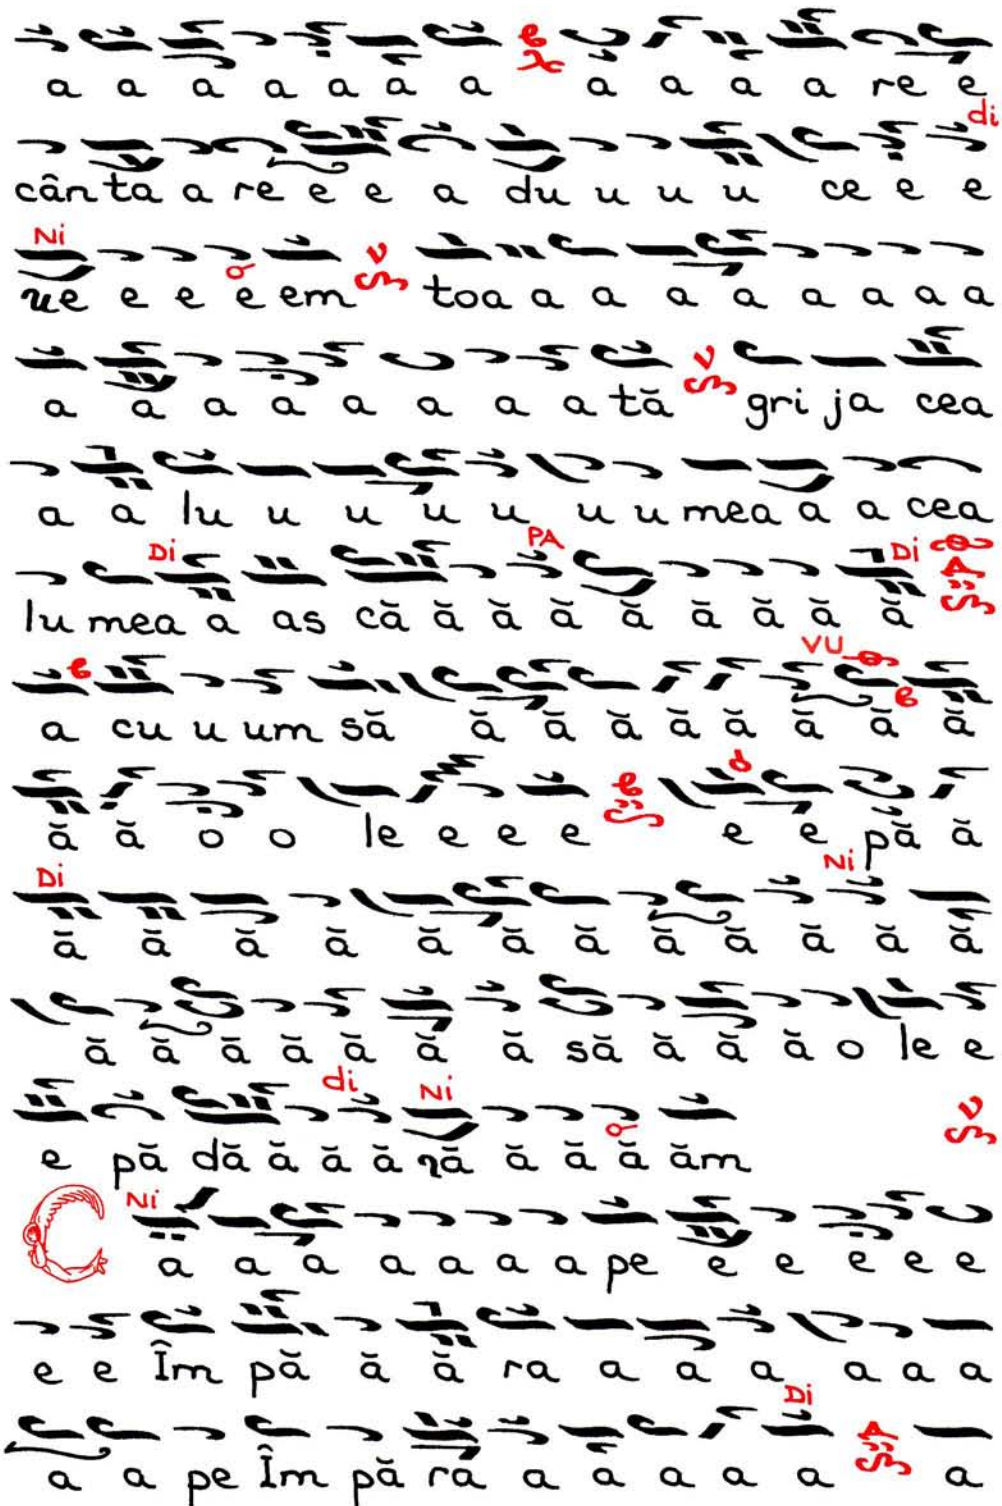 a a a a a a a a a a a re e
di
cân ta a re e e a du u u u ce e e
Ni
ue e e e em toa a a a a a a a
a a a a a a a a tă gri ja cea
a a lu u u u u u u mea a a cea
Di PA Di
lu mea a as că ă ă ă ă ă ă ă ă
VU
a cu u um să ă ă ă ă ă ă ă ă
ă ă o o le e e e e e pă ă
Di Ni
ă ă ă ă ă ă ă ă ă ă ă ă
ă ă ă ă ă ă ă să ă ă ă o le e
di Ni
e pă dă ă ă ă ră ă ă ă ăm
C Ni
a a a a a a a pe e e e e e
e e Îm pă ă ă ra a a a a a a
Di
a a pe Îm pă ra a a a a a a